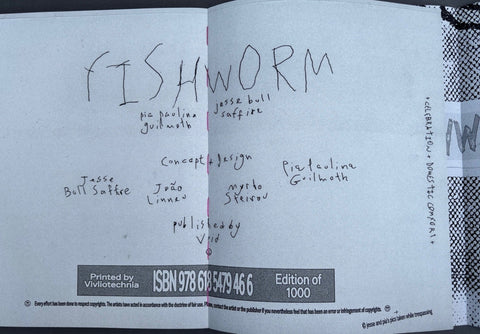 FISHWORM
pia paulina
guilmoth
jesse bull
saffire
concept + design
Jesse
Bull Saffire
João
Linneu
Myrto
Steirou
Pia Paulina
Guilmoth
published by
Void
Printed by
Vivliotechnia
ISBN 978 618 5479 46 6
Edition of
1000
Every effort has been done to respect copyrights. The artists have acted in accordance with the doctrine of fair use. Please, contact the artist or the publisher if you nevertheless feel that has been an error or infringement of copyrights.
© jesse and pia's pics taken while trespassing
+ CELEBRATION + DOMESTIC COMFORT +